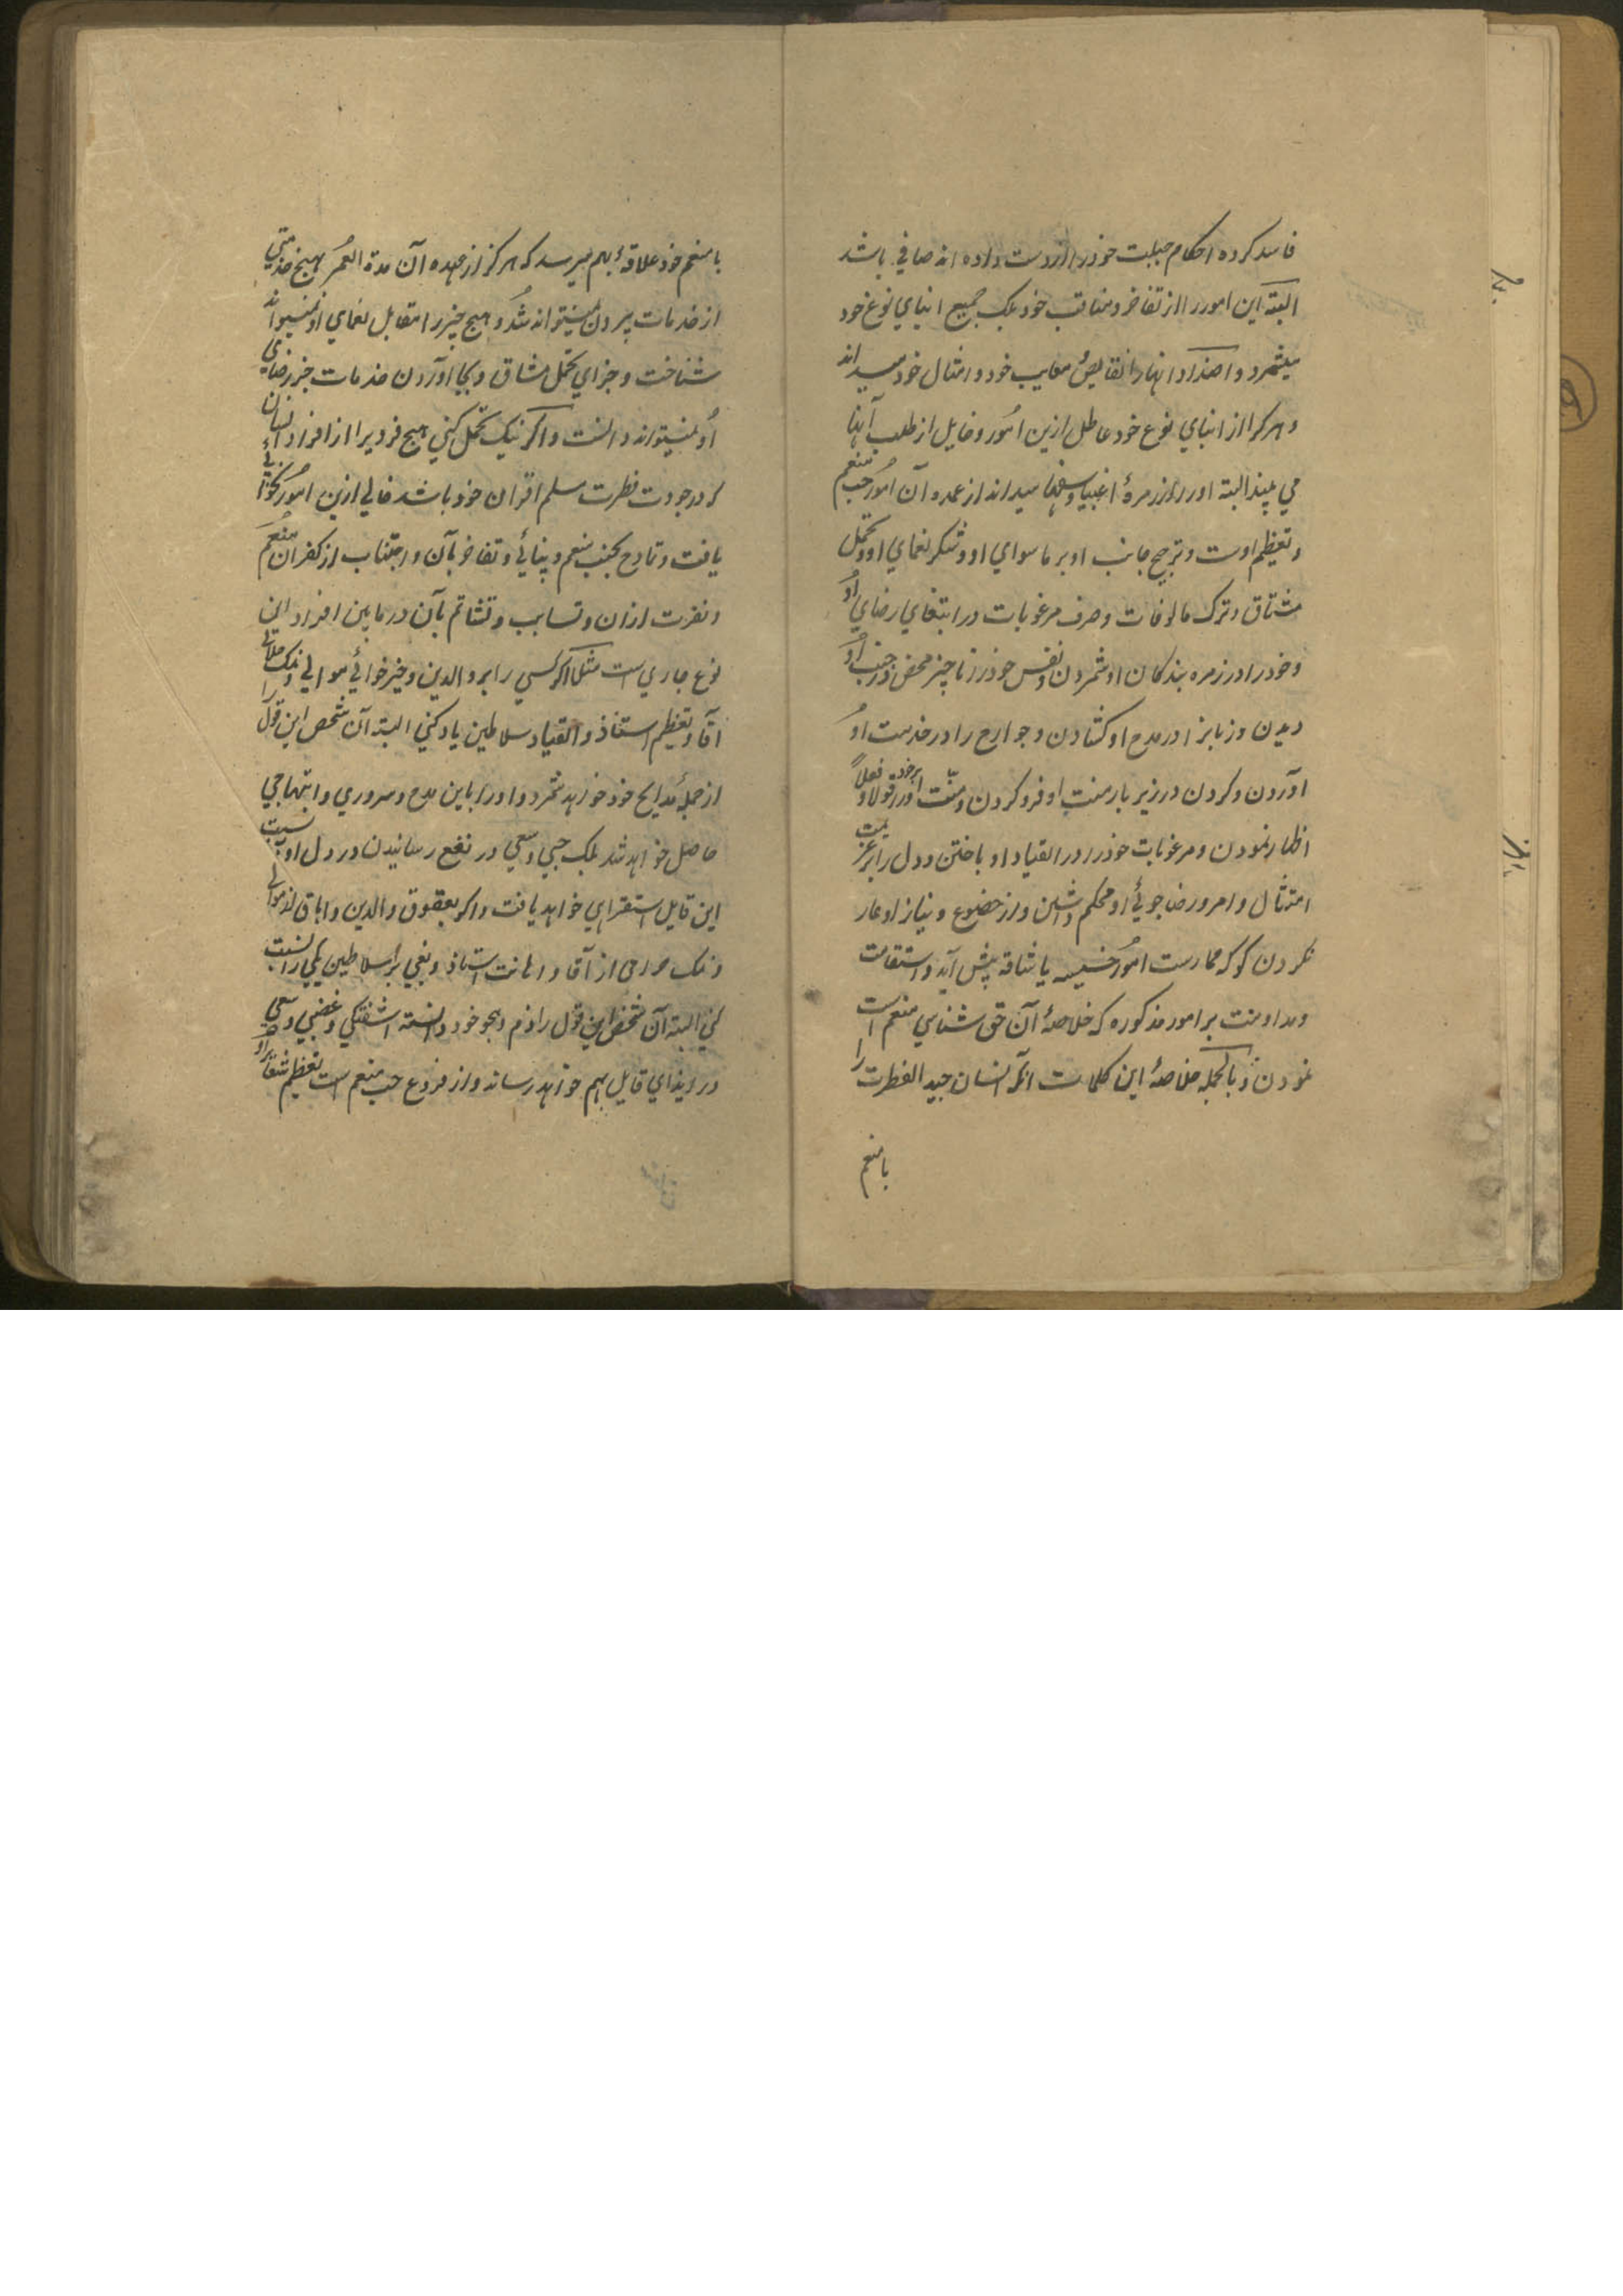 فاسد کرده احکام جبلت خود را از دست داده اند صافی باشد
البته این امور را از تفاخر و مناقب خود بلکه جمیع ابنای نوع خود
میشمرد و اضداد آنها را نقایص معایب خود و امثال خود میداند
و هر کرا از ابنای نوع خود عاطل ازین امور و غافل از طلب آنها
می بیند البته او را از زمرهٔ اغبیا و سفها میداند از عمده آن امور حب منعم
و تعظیم اوست و ترجیح جانب او بر ماسوای او و شکر نعمای او و تحمل
مشاق و ترک مالوفات و صرف مرغوبات در ابتغای رضای او
و خود را در زمره بندگان او شمردن و نفس خود را ناچیز محض در جنب او
دیدن و زبانرا در مدح او کشادن و جوارح را در خدمت او
آوردن و گردن در زیر بار منت او فرو کردن و منت او را بر خود قولا و فعلاً
اظهار نمودن و مرغوبات خود را در انقیاد او باختن و دل را بر عزیمت
امتثال و امر و رضاجوئی او محکم داشتن و از خضوع و نیاز او عار
نکردن گو که ممارست امور خسیسه یا شاقه پیش آید و استقامت
و مداومت بر امور مذکوره که خلاصهٔ آن حق شناسی منعم است
نمودن و بالجمله خلاصهٔ این کلمات آنکه انسان جید الفطرت را
بامنعم
بامنعم خود علاقهٔ بهم میرسد که هرگز از عهده آن مدة العمر بهیچ خدمتی
از خدمات بیرون نمیتواند شد و هیچ چیز را مقابل نعمای او نمیتواند
شناخت و جزای تحمل مشاق و بجا آوردن خدمات جز رضای
او نمیتواند دانست و اگر نیک تأمل کنی هیچ فردیرا از افراد انسان
که در جودت فطرت مسلم اقران خود باشد خالی ازین امور نخواهی
یافت و تمادح بحب منعم و تفاخر بآن و اجتناب از کفران منعم
و نفرت ازان و تسابب و تشاتم بآن در مابین افراد این
نوع جاری است مثلا اگر کسی را ببر والدین و خیرخواهی موالی و نمک حلالی
آقا و تعظیم استاذ و انقیاد سلاطین یاد کنی البته آن شخص این قول را
از جملهٔ مدایح خود خواهد شمرد و او را باین مدح سروری و ابتهاجی
حاصل خواهد شد بلکه حبی و سعی در نفع رسانیدن در دل او بنسبت
این قایل استقرای خواهد یافت و اگر بعقوق والدین و اباق از موالی
و نمک حرامی از آقا و اهانت استاذ و بغی بر سلاطین یکی را نسبت
کنی البته آن شخص این قول را ذم و هجو خود دانسته آشفتگی و غضبی و سعی
در ایذای قایل بهم خواهد رساند و از فروع حب منعم است تعظیم شعایر او